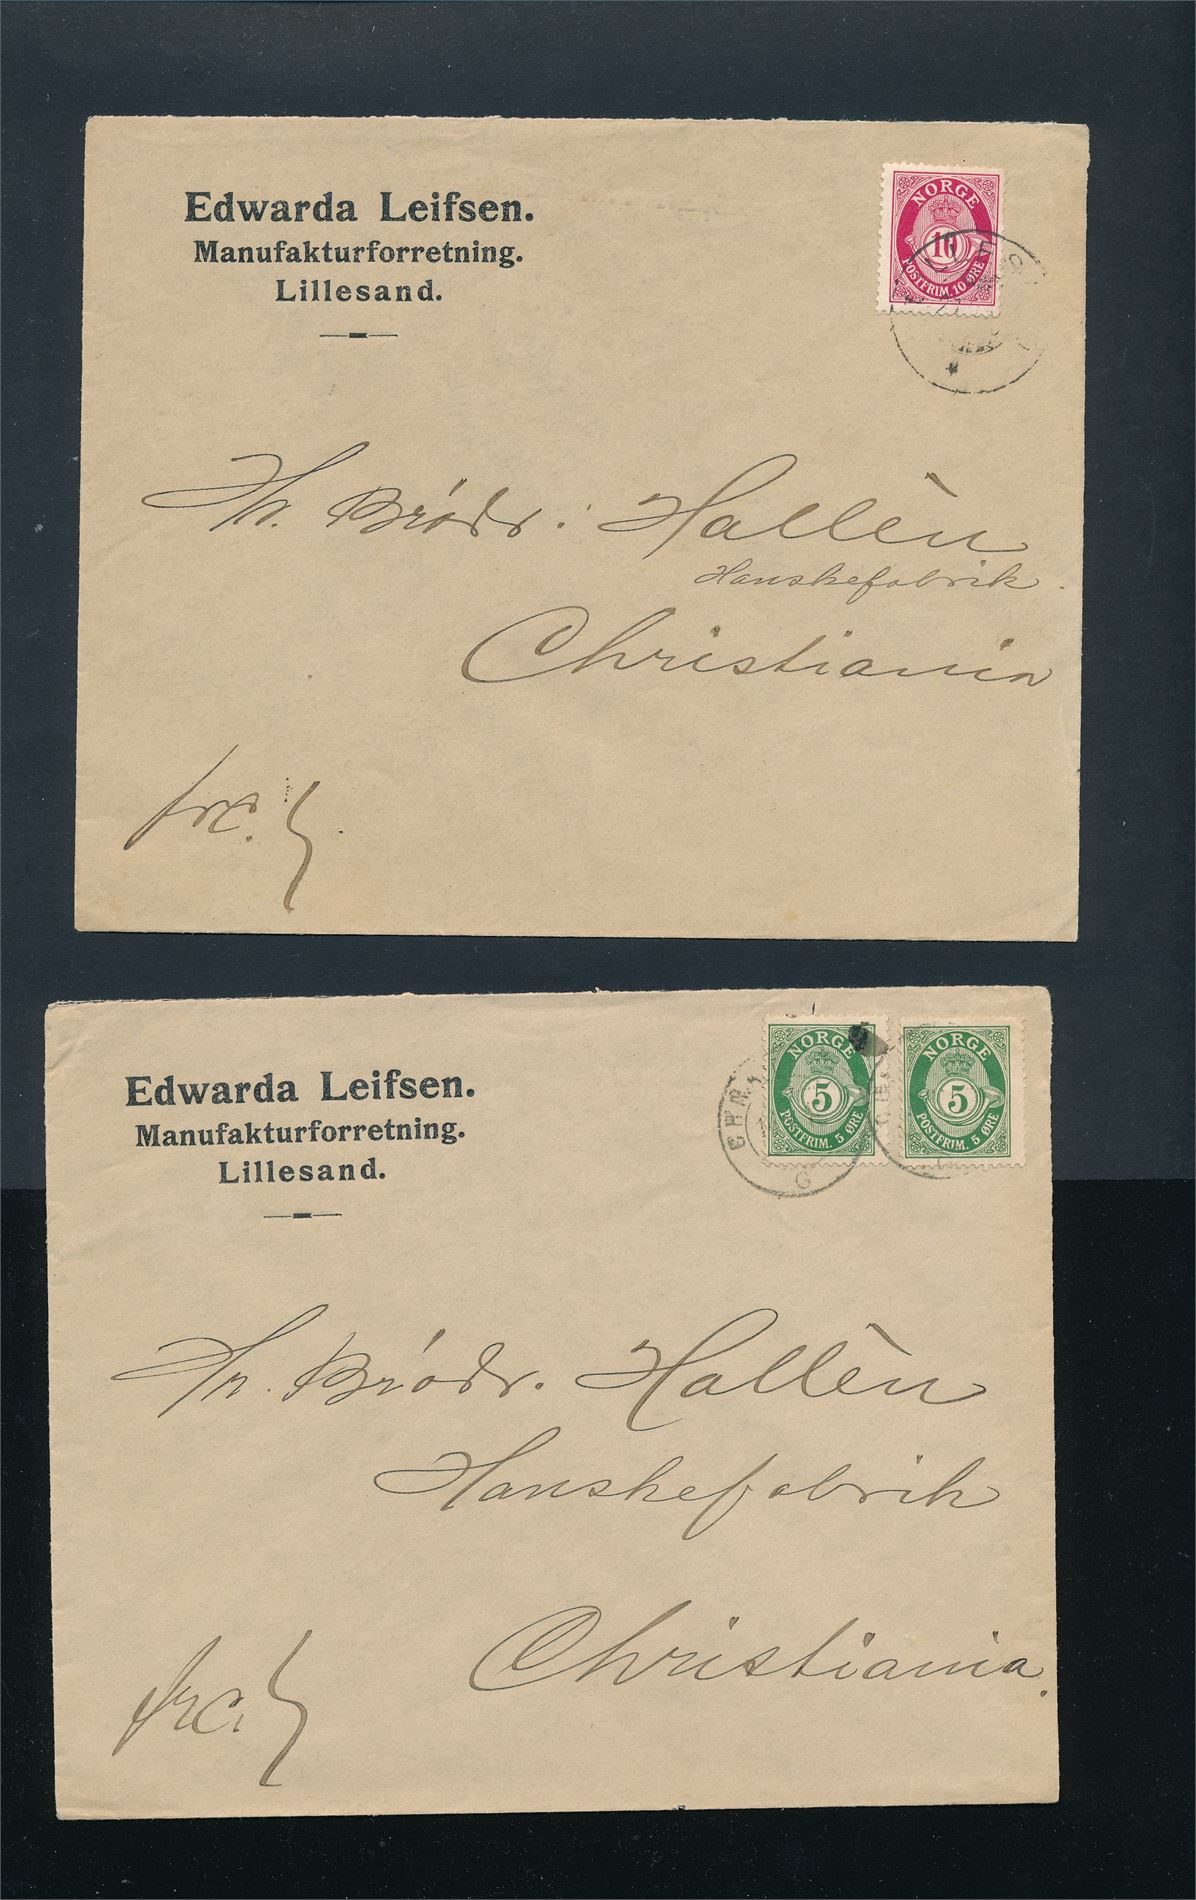 Edwarda Leifsen.
Manufakturforretning.
Lillesand.
NORGE
10
POSTFRIM. 10 ØRE
Hr. Bródr: Hallèn
Hanskefabrik.
Christiania
frc.
Edwarda Leifsen.
Manufakturforretning.
Lillesand.
NORGE
5
POSTFRIM. 5 ØRE
NORGE
5
POSTFRIM. 5 ØRE
G
Hr. Bródr. Hallèn
Hanskefabrik
Christiania.
frc.